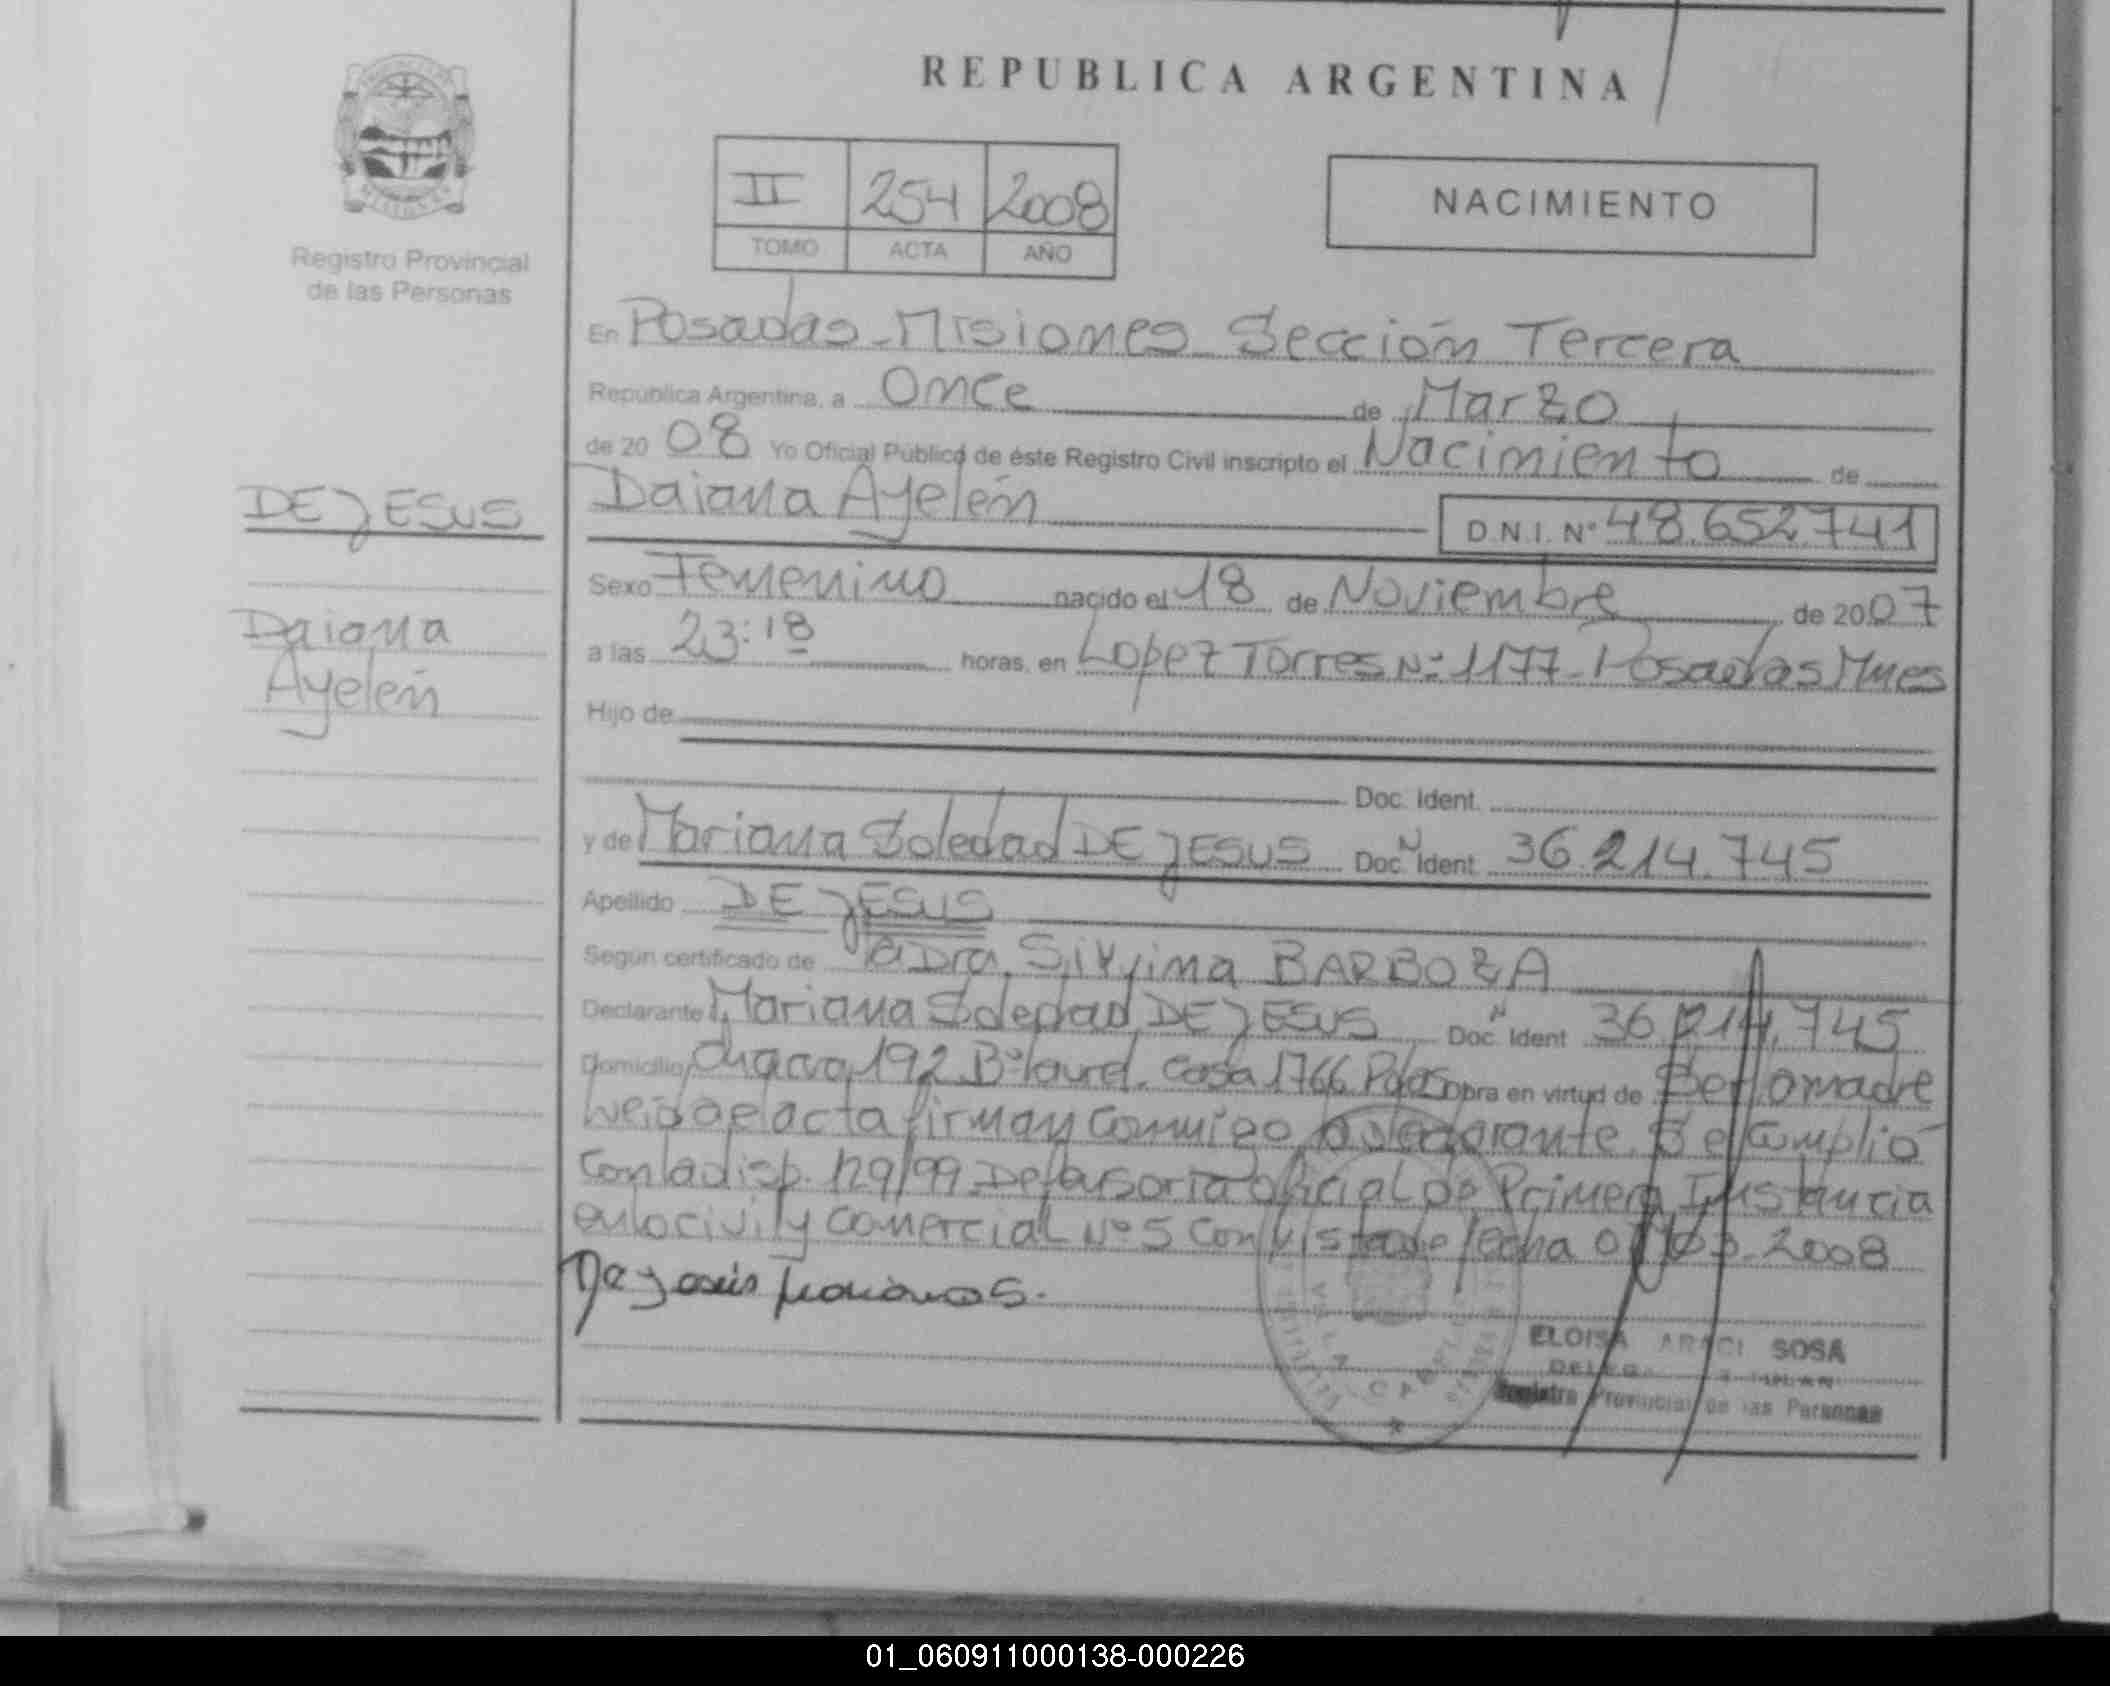 REPUBLICA ARGENTINA
II 254 2008
TOMO ACTA AÑO
NACIMIENTO
Registro Provincial
de las Personas
En Posadas - Misiones Sección Tercera
República Argentina, a Once de Marzo
de 20 08 Yo Oficial Público de éste Registro Civil inscripto el Nacimiento de
DE JESUS
Daiana Ayelén D.N.I. Nº 48.652.741
Sexo Femenino nacido el 18 de Noviembre de 2007
Daiana
Ayelén
a las 23:18 horas, en Lopez Torres Nº 1177 - Posadas Mnes
Hijo de
Doc. Ident.
y de Mariana Soledad DE JESUS Doc. N Ident 36.214.745
Apellido DE JESUS
Según certificado de la Dra. Silvina BARBOZA
Declarante Mariana Soledad DE JESUS Doc. N Ident 36.214.745
Domicilio Chacra 192 Bº Lourd. Casa 1766 Pdas obra en virtud de Ser la madre
Leida el acta firman Conmigo la declarante. Se Cumplió
Con la disp. 129/99. Defensoria Oficial de Primera Instancia
en lo civil y Comercial Nº 5 Con vista de fecha 2008
De Jesús Mariana S.
ELOISA ARACI SOSA
Registro Provincial de las Personas
01_060911000138-000226